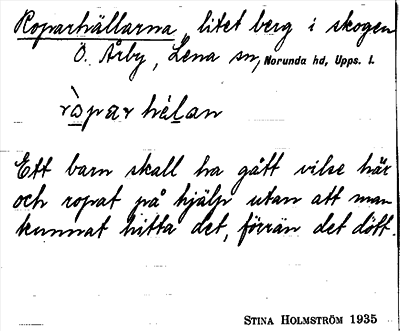 Roparhällarna, litet berg i skogen
Ö. Årby, Lena sn, Norunda hd, Upps. l.
ròpar hèlan
Ett barn skall ha gått vilse här
och ropat på hjälp utan att man
kunnat hitta det, förrän det dött.
STINA HOLMSTRÖM 1935